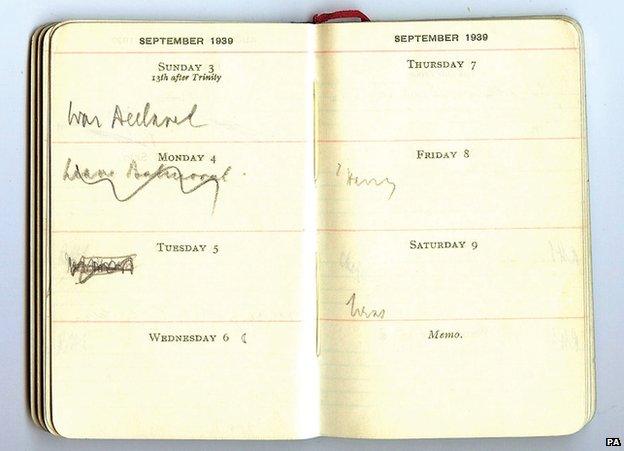 SEPTEMBER 1939
SUNDAY 3
13th after Trinity
War Declared
MONDAY 4
Leave Balmoral.
TUESDAY 5
WEDNESDAY 6 ☾
SEPTEMBER 1939
THURSDAY 7
FRIDAY 8
? Henry
SATURDAY 9
Memo.
PA